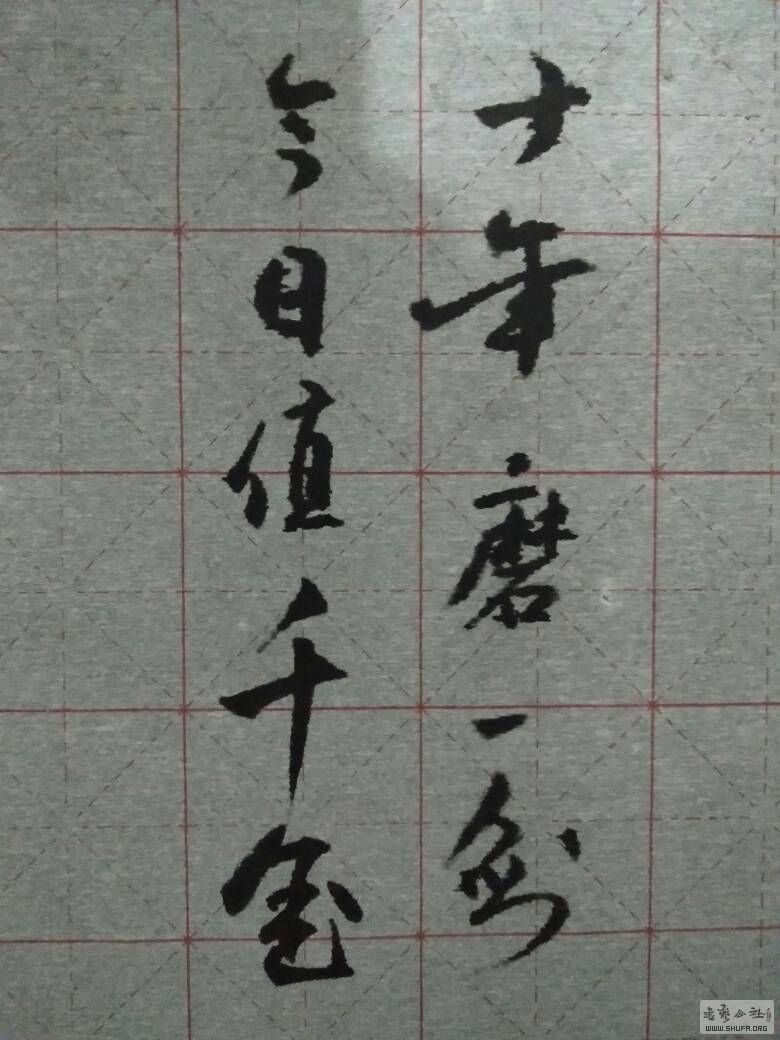 十年磨一剑
今日值千金
书艺公社
WWW.SHUFA.ORG